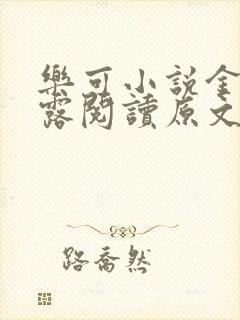 樂可小說金
露閱讀原文
路喬然